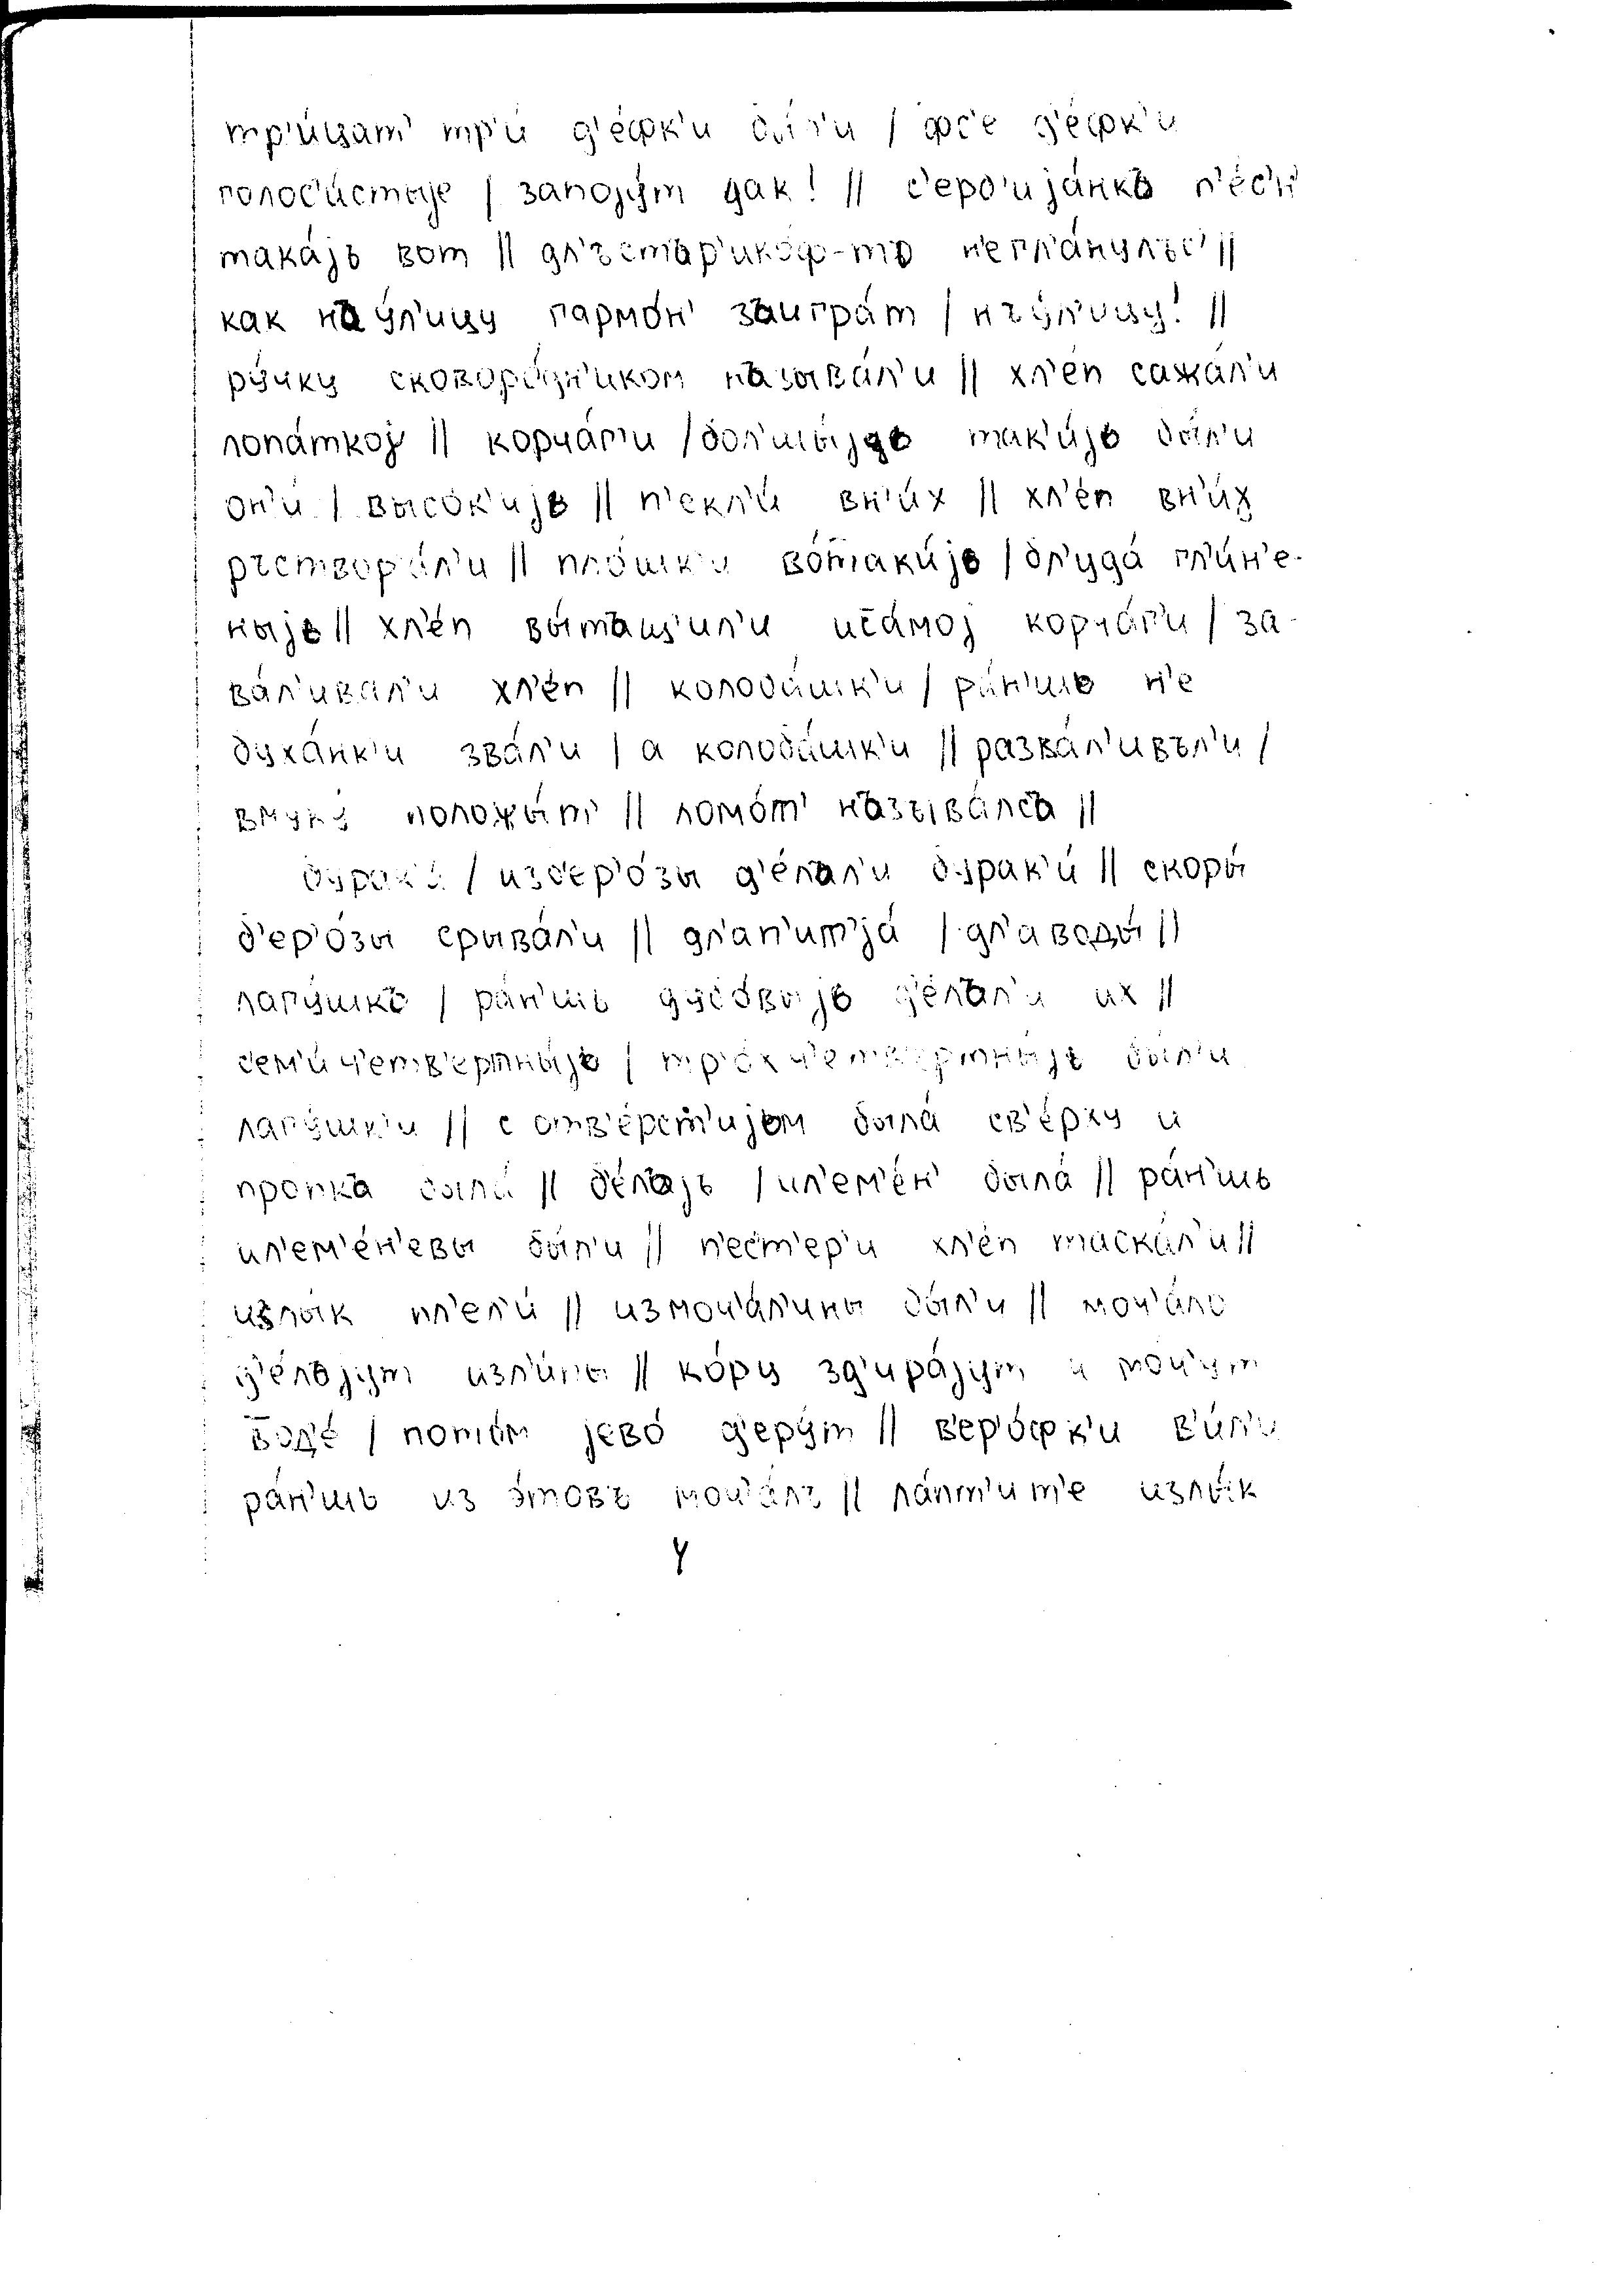 тр'и́цат' тр'и́ д'е́фк'и бы́л'и / фс'е д'е́фк'и
голос'и́стыjе / запоjу́т дак! // с'ерб'иjа́нкъ п'е́с'н'
така́jъ вот // дл'ъстар'ико́ф-то н'егл'а́нулъс' //
как нау́л'ицу гармо́н' заигра́т / нъу́л'ицу! //
ру́чку сковоро́дн'иком называ́л'и // хл'е́п сажа́л'и
лопа́ткоj // корча́г'и / бол'шы́jь так'и́jь бы́л'и
он'и́ / высо́к'иjь // п'екл'и́ вн'и́х // хл'е́п вн'и́х
ръствор'а́л'и // пло́шк'и во́таки́jь / бл'уда́ гл'и́н'е-
ныjь // хл'е́п вы́тащ'ил'и исса́моj корча́г'и / за-
ва́л'ивал'и хл'е́п // колоба́шк'и / ра́н'шь н'е
буха́нк'и зва́л'и / а колоба́шк'и // разва́л'ивъл'и /
вмуку́ положы́т' // ломо́т' называ́лса //
бурак'и́ / изб'ер'о́зы д'е́лал'и бурак'и́ // скоры́
б'ер'о́зы срыва́л'и // дл'ап'ит'jа́ / дл'аводы́ //
лагу́шкъ / ра́н'шь дубо́выjь д'е́лал'и их //
сем'и́ч'етв'ертны́jь / тр'о́хч'етв'ертны́jь бы́л'и
лагу́шк'и // с отв'е́рст'иjьм была́ св'е́рху и
пропка была́ // б'е́лаjь / ил'ем'е́н' была́ // ра́н'шь
ил'ем'е́н'евы бы́л'и // п'е́ст'ер'и хл'е́п таска́л'и //
излы́к пл'ел'и́ // измоч'а́л'ины бы́л'и // моч'а́ло
д'е́лъjут изл'и́пы // ко́ру зд'ира́jут и моч'ут
вод'е́ / пото́м jево́ д'еру́т // в'ер'о́фк'и в'и́л'и
ра́н'шь из э́товъ моч'а́лъ // ла́пт'ит'е излы́к
4